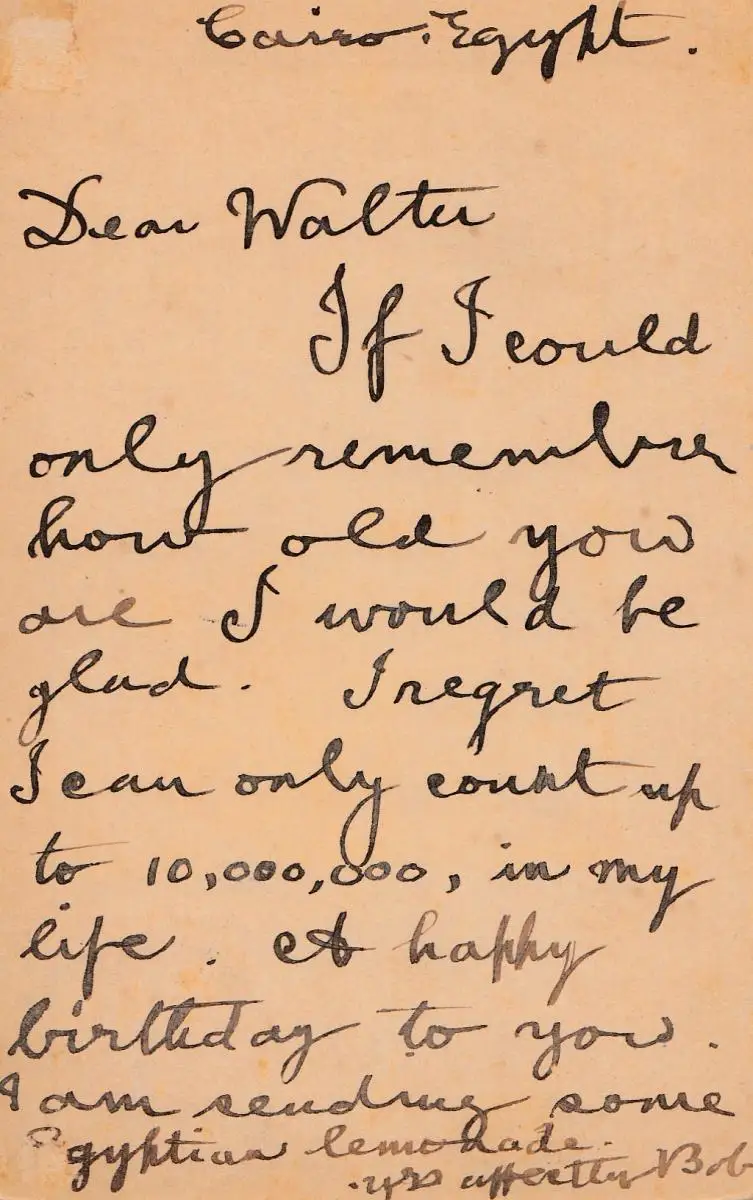 Cairo. Egypt.
Dear Walter
If I could
only remember
how old you
are I would be
glad. I regret
I can only count up
to 10,000,000, in my
life. A happy
birthday to you.
I am sending some
Egyptian lemonade.
yrs affectly Bob